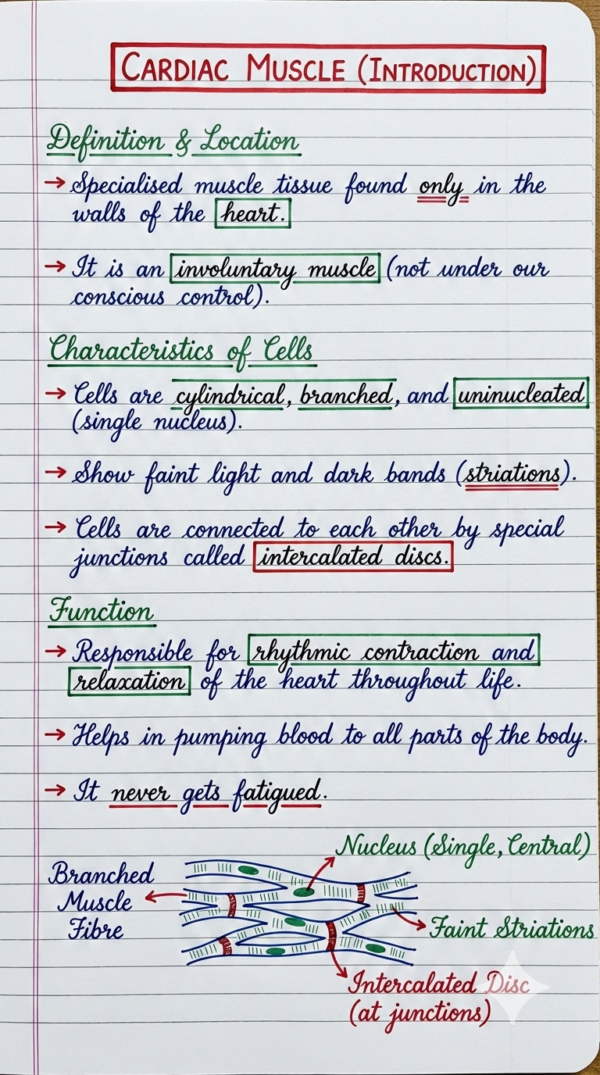 CARDIAC MUSCLE (INTRODUCTION)
Definition & Location
→ Specialised muscle tissue found only in the
walls of the heart.
→ It is an involuntary muscle (not under our
conscious control).
Characteristics of Cells
→ Cells are cylindrical, branched, and uninucleated
(single nucleus).
→ Show faint light and dark bands (striations).
→ Cells are connected to each other by special
junctions called intercalated discs.
Function
→ Responsible for rhythmic contraction and
relaxation of the heart throughout life.
→ Helps in pumping blood to all parts of the body.
→ It never gets fatigued.
Nucleus (Single, Central)
Branched
Muscle
Fibre
Faint Striations
Intercalated Disc
(at junctions)